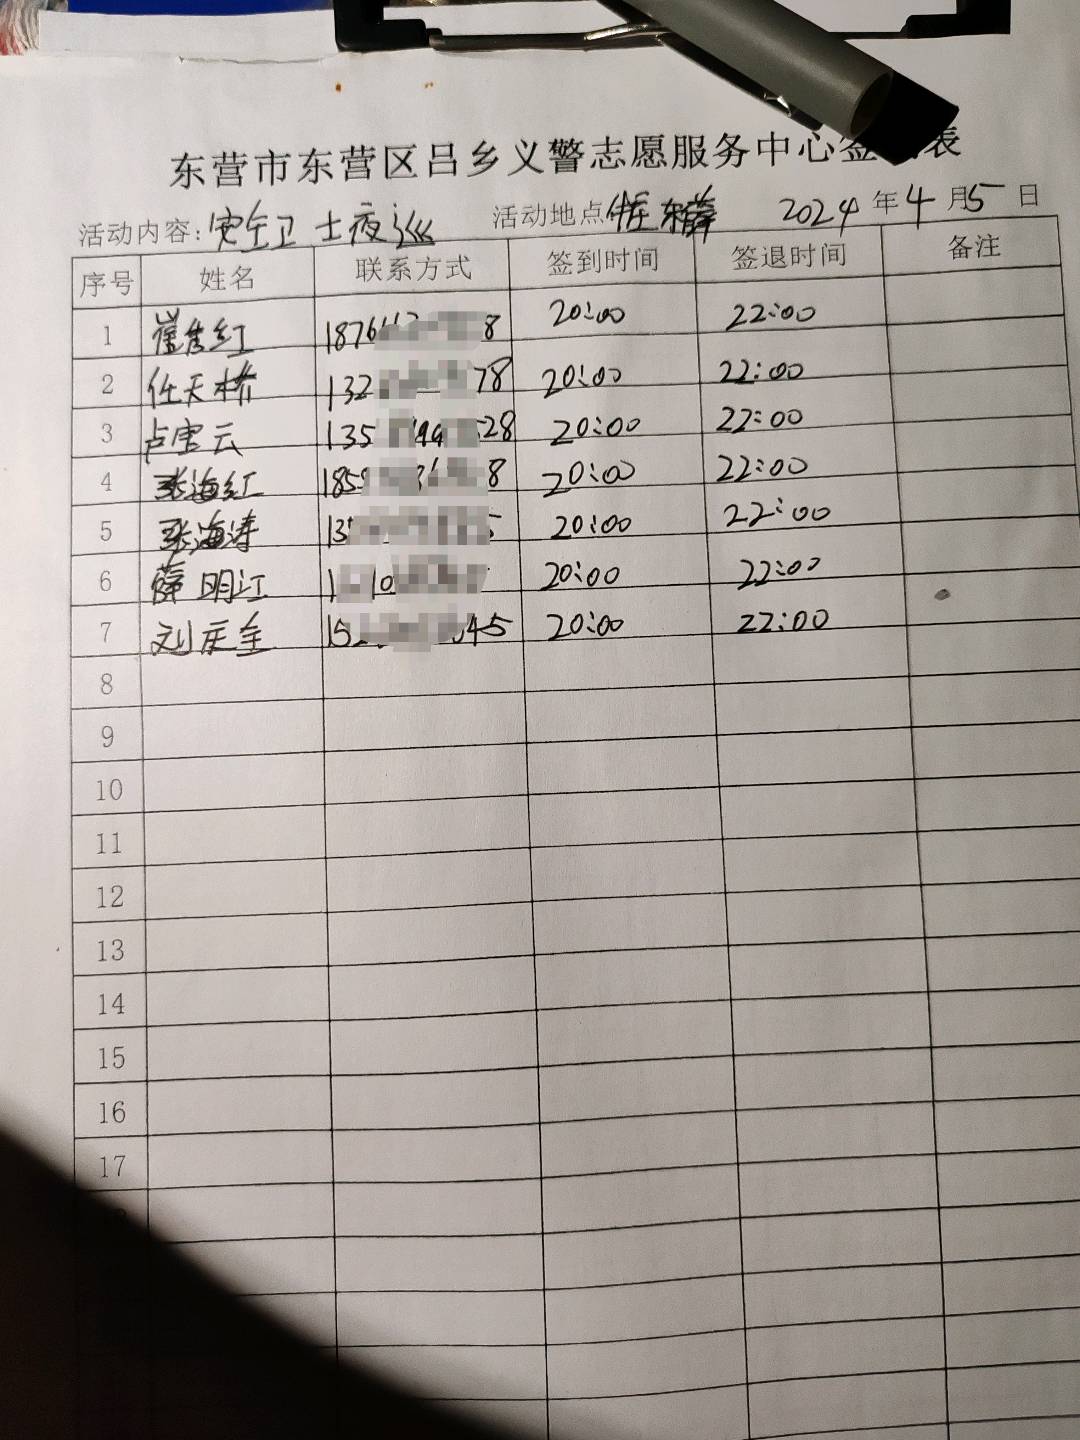 东营市东营区吕乡义警志愿服务中心签 表
活动内容:安全卫士夜巡 活动地点 任东薛 2024年4月5日
序号 姓名 联系方式 签到时间 签退时间 备注
1 崔秀红 1876 8 20:00 22:00
2 任天桥 132 78 20:00 22:00
3 卢宝云 135 28 20:00 22:00
4 张海红 185 8 20:00 22:00
5 张海涛 13 5 20:00 22:00
6 薛明江 1 10 20:00 22:00
7 刘庆全 152 45 20:00 22:00
8
9
10
11
12
13
14
15
16
17